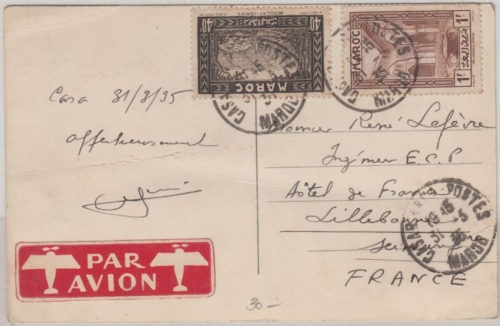 40 MAROC 40
MAROC
1F 1F
CASABLANCA POSTES
MAROC
Casa 31/3/35
Affectueusement
Monsieur René Lefèvre
Ingénieur E.C.P
Hôtel de France
Lillebonne
Seine Inf
FRANCE
CASABLANCA POSTES
MAROC
PAR
AVION
30-